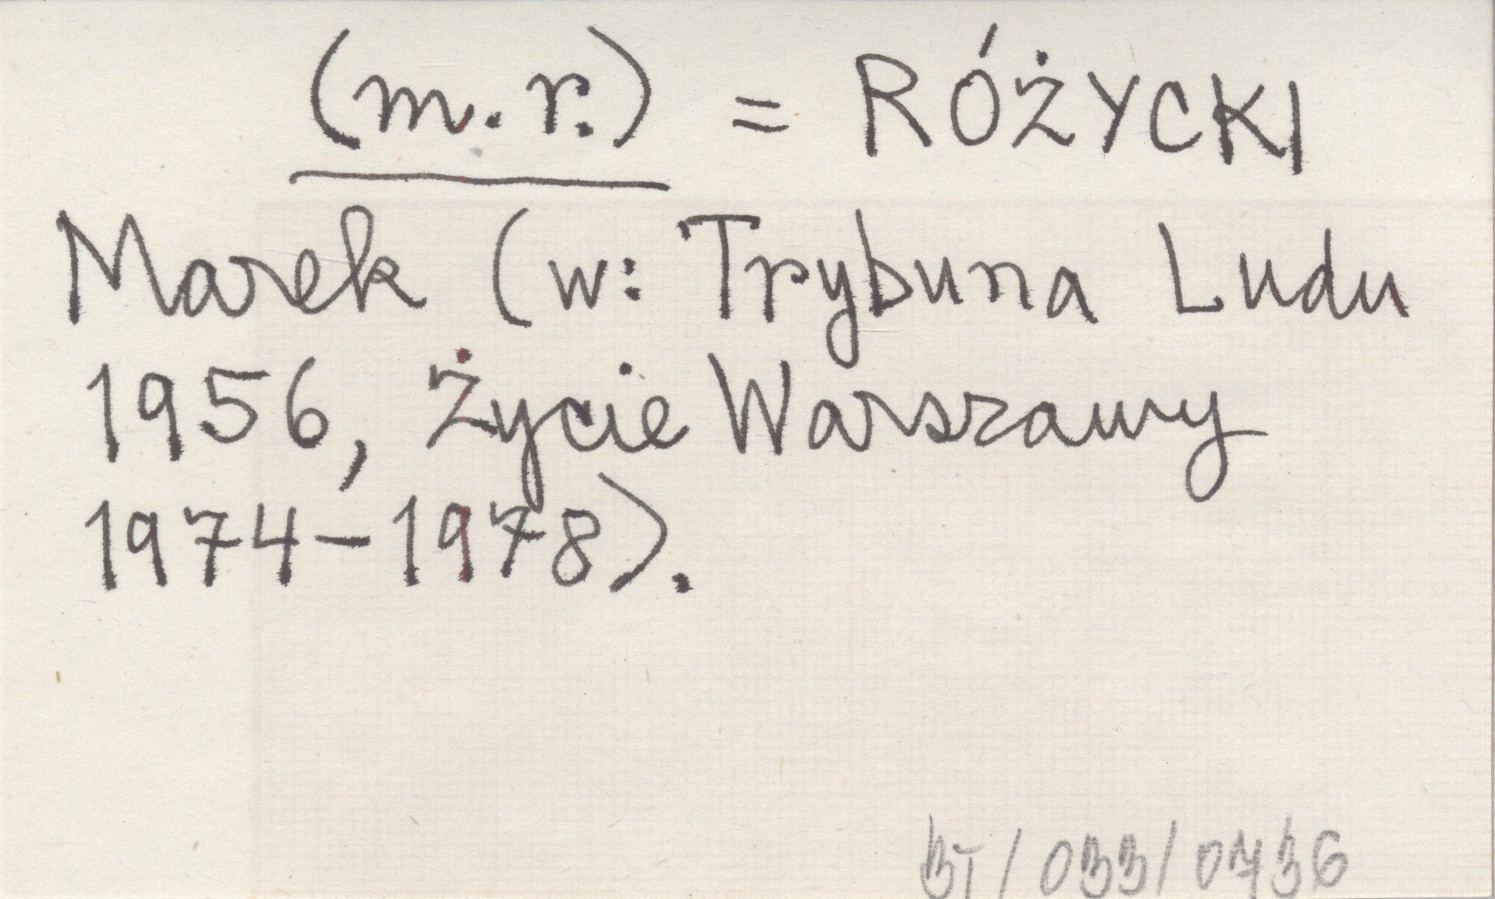 (m.r.) = RÓŻYCKI
Marek (w: Trybuna Ludu
1956, Życie Warszawy
1974-1978).
BJ/033/0736